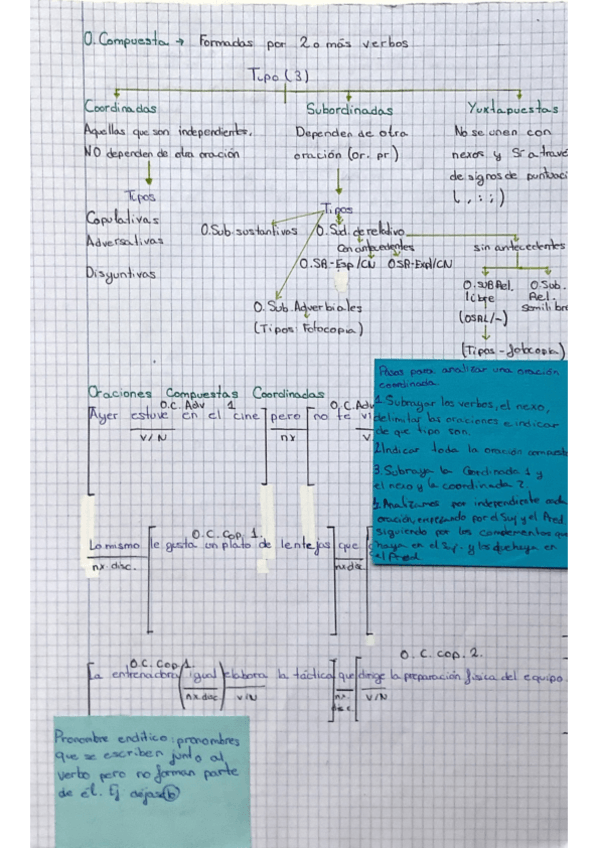 O. Compuesta → Formadas por 2 o más verbos
Tipo (3)
Coordinadas
Aquellas que son independientes,
NO dependen de otra oración
Tipos
Copulativas
Adversativas
Disyuntivas
Subordinadas
Dependen de otra
oración (or. pr)
Tipos
O.Sub. sustantivas
O. Sub. de relativo
Con antecedentes
O.SR-Esp/CN O SR-Expl/CN
O. Sub. Adverbiales
(Tipos Fotocopia)
Yuxtapuestas
No se unen con
nexos y Sí a través
de signos de puntuaci
( , : ; )
sin antecedentes
O. SUB Rel.
libre
(OSRL/-)
(Tipos - fotocopia)
O. Sub.
Rel.
Semilibre
Oraciones Compuestas Coordinadas
O.C. Adv 1
O.C. Adv
Ayer estuve en el cine pero no te vi
V/N
nx
V
Pasos para analizar una oración
coordinada
1. Subrayar los verbos, el nexo,
delimitar las oraciones e indicar
de que tipo son.
2. Indicar toda la oración compuest
3. Subraya la Coordinada 1 y
el nexo y la coordinada 2.
4. Analizamos por independiente cada
oración, empezando por el Suj y el Pred
siguiendo por los complementos que
haya en el Suj. y los que haya en
el Pred.
O.C. Cop 1.
Lo mismo le gusta un plato de lentejas que
nx disc.
nx disc
O.C. Cop 1.
O.C. cop. 2.
La entrenadora igual elabora la táctica que dirige la preparación física del equipo.
nx disc
V/N
nx
disc
V/N
Pronombre enclítico: pronombres
que se escriben junto al
verbo pero no forman parte
de él. Ej dejaslo